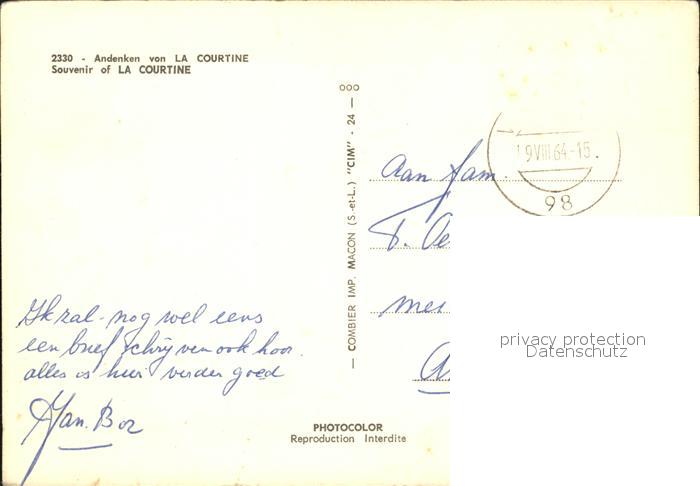 2330 - Andenken von LA COURTINE
Souvenir of LA COURTINE
COMBIER IMP. MACON (S.-et-L.) "CIM" - 24 —
ooo
9 VIII 64-15
98
Aan fam.
T. De
mei
privacy protection
Datenschutz
Ik zal nog wel eens
een brief schrijven ook hoor.
alles is hier verder goed
Jan. Bor
PHOTOCOLOR
Reproduction Interdite